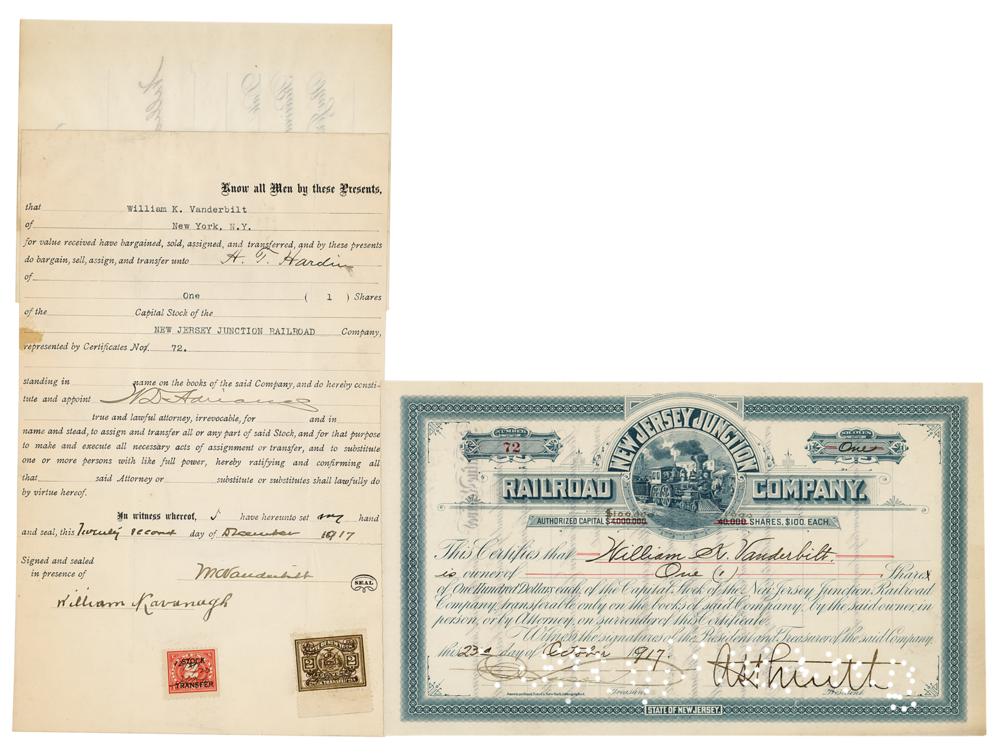 Know all Men by these Presents,
that William K. Vanderbilt
of New York, N.Y.
for value received have bargained, sold, assigned, and transferred, and by these presents
do bargain, sell, assign, and transfer unto A. T. Hardin
of
One ( 1 ) Shares
of the Capital Stock of the
NEW JERSEY JUNCTION RAILROAD Company,
represented by Certificates No. 72.
standing in name on the books of the said Company, and do hereby consti-
tute and appoint
true and lawful attorney, irrevocable, for and in
name and stead, to assign and transfer all or any part of said Stock, and for that purpose
to make and execute all necessary acts of assignment or transfer, and to substitute
one or more persons with like full power, hereby ratifying and confirming all
that said Attorney or substitute or substitutes shall lawfully do
by virtue hereof.
In witness whereof, I have hereunto set my hand
and seal, this Twenty second day of December 1917
Signed and sealed
in presence of
WKVanderbilt
SEAL
William Kavanagh
STOCK
TRANSFER
2
NUMBER
72
SHARES
One
NEW JERSEY JUNCTION
RAILROAD COMPANY.
$100,000
AUTHORIZED CAPITAL $4,000,000 40,000 SHARES, $100. EACH.
This Certifies that William K. Vanderbilt.
is owner of One (1) Shares
of One Hundred Dollars each, of the Capital Stock of the New Jersey Junction Railroad
Company, transferable only on the books of said Company, by the said owner, in
person, or by Attorney, on surrender of this Certificate.
Witness the signatures of the President and Treasurer of the said Company,
this 23d day of October 1917.
Treasurer. President.
STATE OF NEW JERSEY.